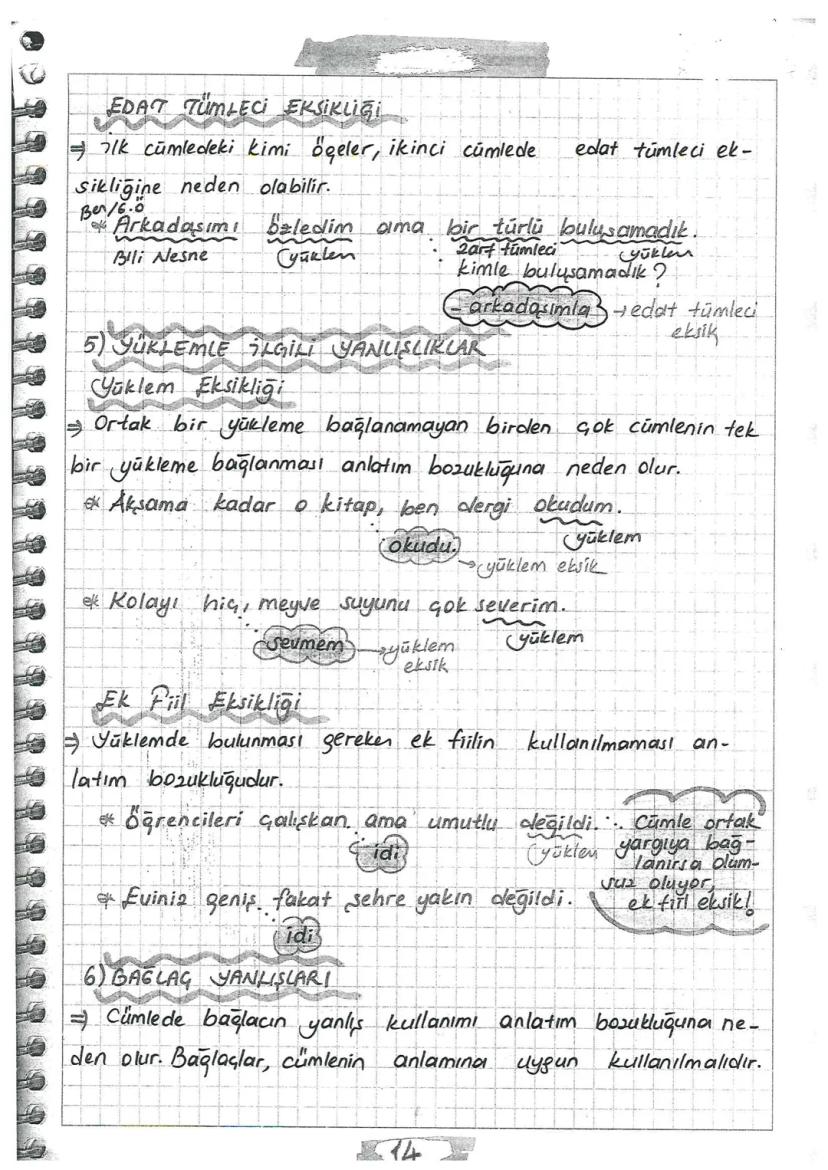 EDAT TÜMLECİ EKSİKLİĞİ
⇒ İlk cümledeki kimi ögeler, ikinci cümlede edat tümleci ek-
sikliğine neden olabilir.
Ben/G.Ö
* Arkadaşımı özledim ama bir türlü buluşamadık.
Blli Nesne yüklem zarf tümleci yüklem
kimle buluşamadık?
- arkadaşımla → edat tümleci
eksik
5) YÜKLEMLE İLGİLİ YANLIŞLIKLAR
Yüklem Eksikliği
⇒ Ortak bir yükleme bağlanamayan birden çok cümlenin tek
bir yükleme bağlanması anlatım bozukluğuna neden olur.
* Akşama kadar o kitap, ben dergi okudum.
okudu. yüklem
→ yüklem eksik
* Kolayı hiç, meyve suyunu çok severim.
sevmem → yüklem yüklem
eksik
Ek Fiil Eksikliği
⇒ Yüklemde bulunması gereken ek fiilin kullanılmaması an-
latım bozukluğudur.
* Öğrencileri çalışkan ama umutlu değildi. ∴ Cümle ortak
idi yüklem yargıya bağ-
lanırsa olum-
suz oluyor,
* Eviniz geniş fakat şehre yakın değildi. ek fiil eksik!
idi
6) BAĞLAÇ YANLIŞLARI
⇒ Cümlede bağlacın yanlış kullanımı anlatım bozukluğuna ne-
den olur. Bağlaçlar, cümlenin anlamına uygun kullanılmalıdır.
14